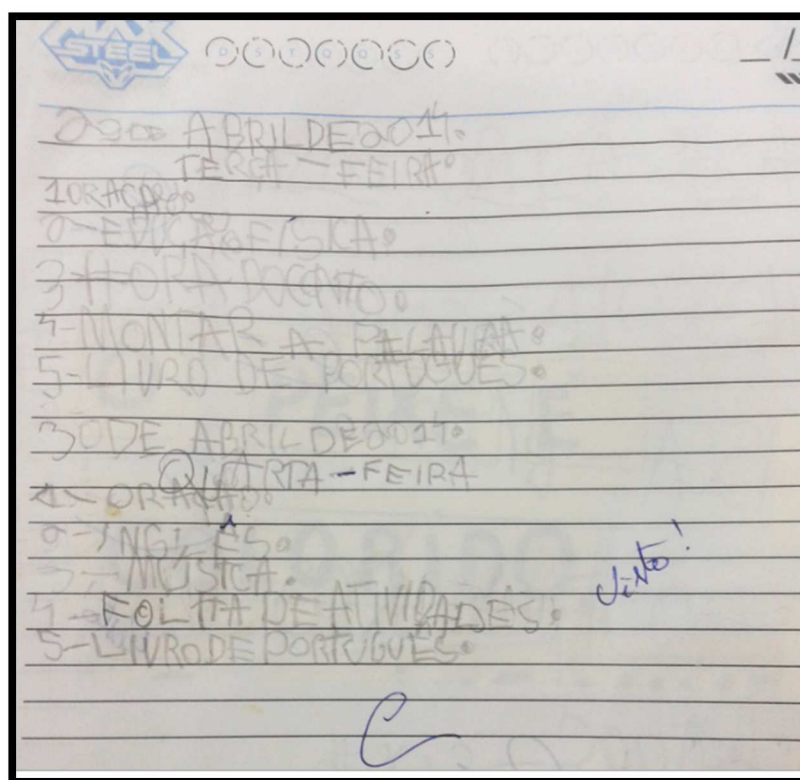 MAX STEEL
D S T Q Q S S
ABRIL DE 2014.
TERÇA-FEIRA.
1 ORAÇÃO.
FÍSICA.
3 HORA DO CONTO.
4-MONTAR A PALAVRA.
5-LIVRO DE PORTUGUÊS.
30 DE ABRIL DE 2014.
QUARTA-FEIRA
1-ORAÇÃO.
INGLÊS.
MÚSICA.
4-FOLHA DE ATIVIDADES.
Visto!
5-LIVRO DE PORTUGUÊS.